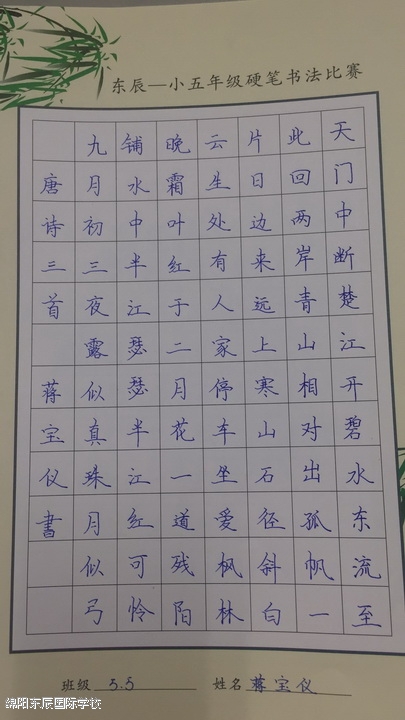 东辰一小五年级硬笔书法比赛
天门中断楚江开碧水东流至
此回两岸青山相对出孤帆一
片日边来远上寒山石径斜白
云生处有人家停车坐爱枫林
晚霜叶红于二月花一道残阳
铺水中半江瑟瑟半江红可怜
九月初三夜露似真珠月似弓
唐诗三首 蒋宝仪書
班级 5.5 姓名 蒋宝仪
绵阳东辰国际学校